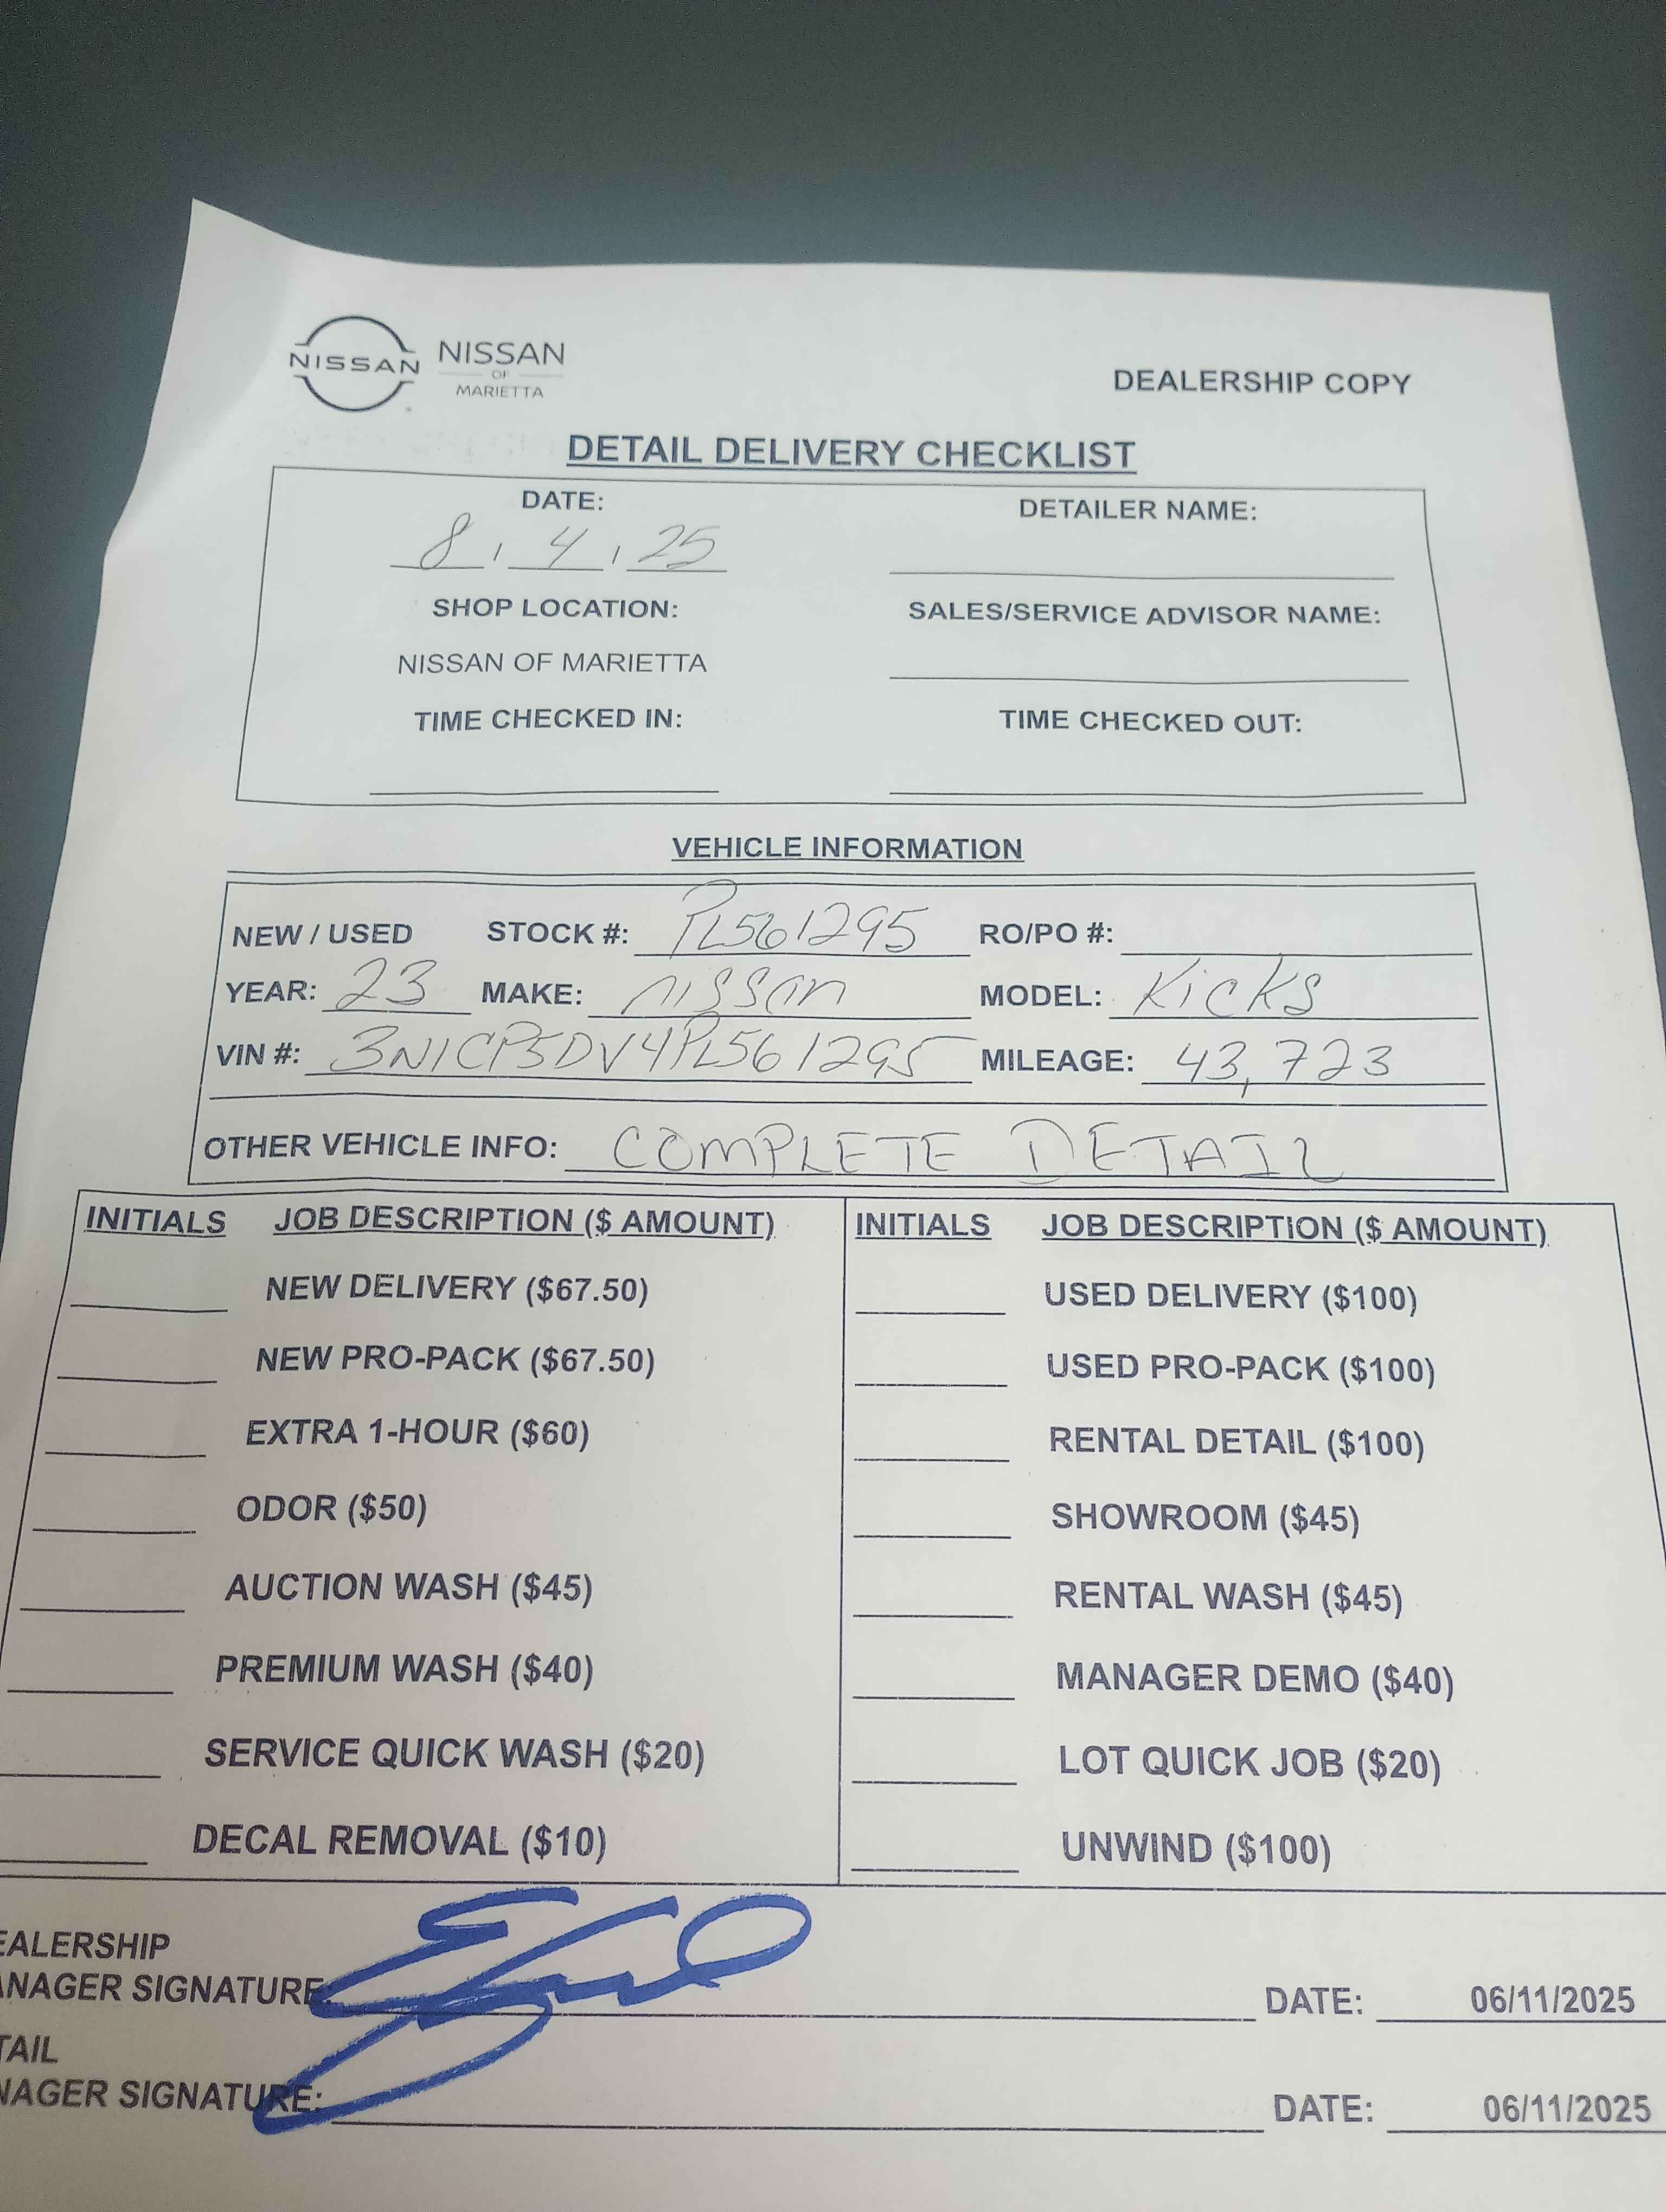 NISSAN
NISSAN
OF
MARIETTA
DEALERSHIP COPY
DETAIL DELIVERY CHECKLIST
DATE: DETAILER NAME:
8, 4, 25
SHOP LOCATION: SALES/SERVICE ADVISOR NAME:
NISSAN OF MARIETTA
TIME CHECKED IN: TIME CHECKED OUT:
VEHICLE INFORMATION
NEW / USED STOCK #: PL561295 RO/PO #:
YEAR: 23 MAKE: nissan MODEL: Kicks
VIN #: 3N1CP5DV4PL561295 MILEAGE: 43,723
OTHER VEHICLE INFO: COMPLETE DETAIL
INITIALS JOB DESCRIPTION ($ AMOUNT) INITIALS JOB DESCRIPTION ($ AMOUNT)
NEW DELIVERY ($67.50) USED DELIVERY ($100)
NEW PRO-PACK ($67.50) USED PRO-PACK ($100)
EXTRA 1-HOUR ($60) RENTAL DETAIL ($100)
ODOR ($50) SHOWROOM ($45)
AUCTION WASH ($45) RENTAL WASH ($45)
PREMIUM WASH ($40) MANAGER DEMO ($40)
SERVICE QUICK WASH ($20) LOT QUICK JOB ($20)
DECAL REMOVAL ($10) UNWIND ($100)
EALERSHIP
ANAGER SIGNATURE: DATE: 06/11/2025
TAIL
NAGER SIGNATURE: DATE: 06/11/2025